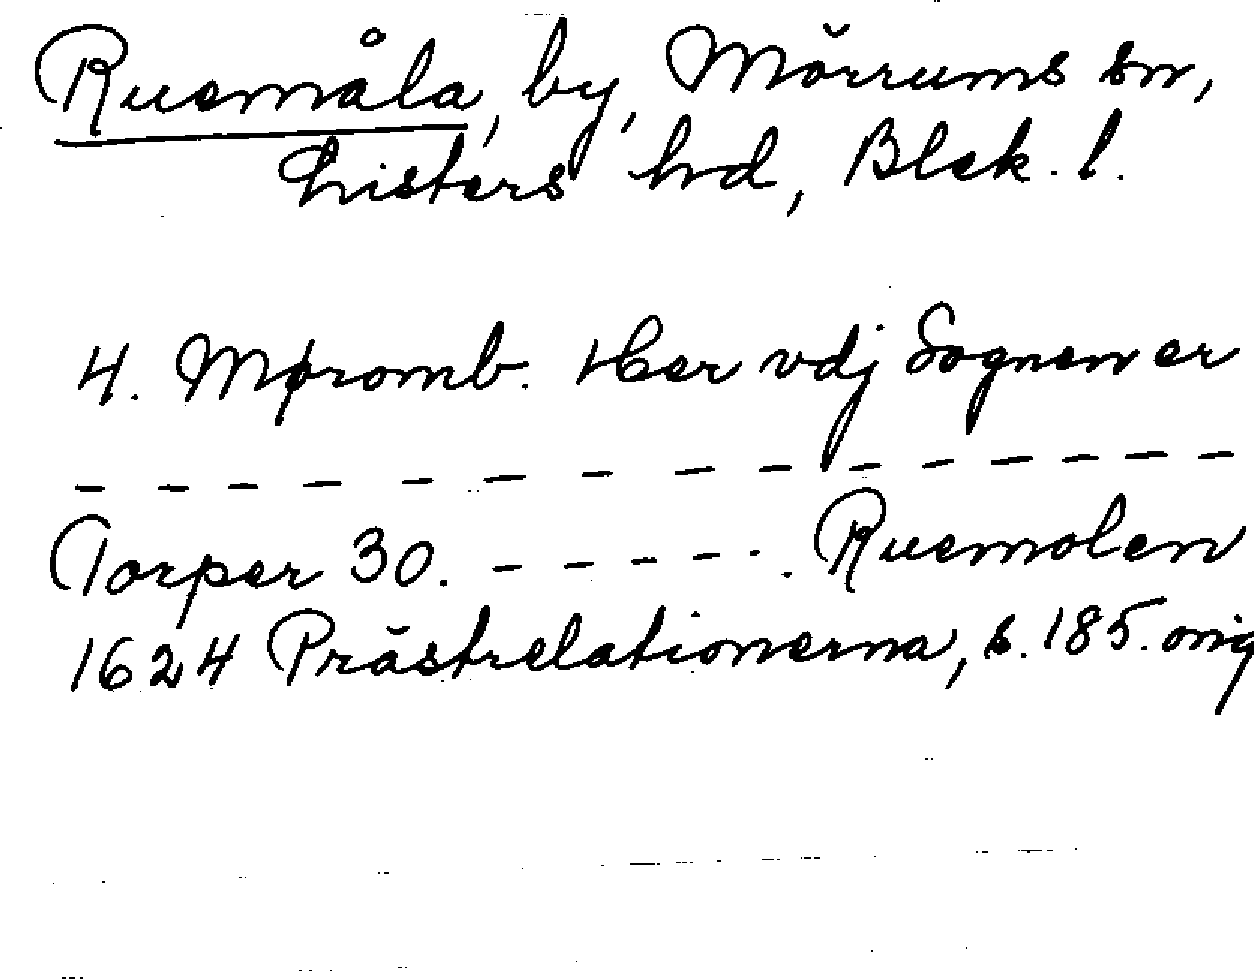 Ruemåla, by, Mörrums sn,
Listers hd, Blek. l.
4. Møromb. Her vdj Sognen er
— — — — — — — — — — — — — —
Torper 30. — — — — - . Ruemolen
1624 Prästrelationerna, s. 185. orig